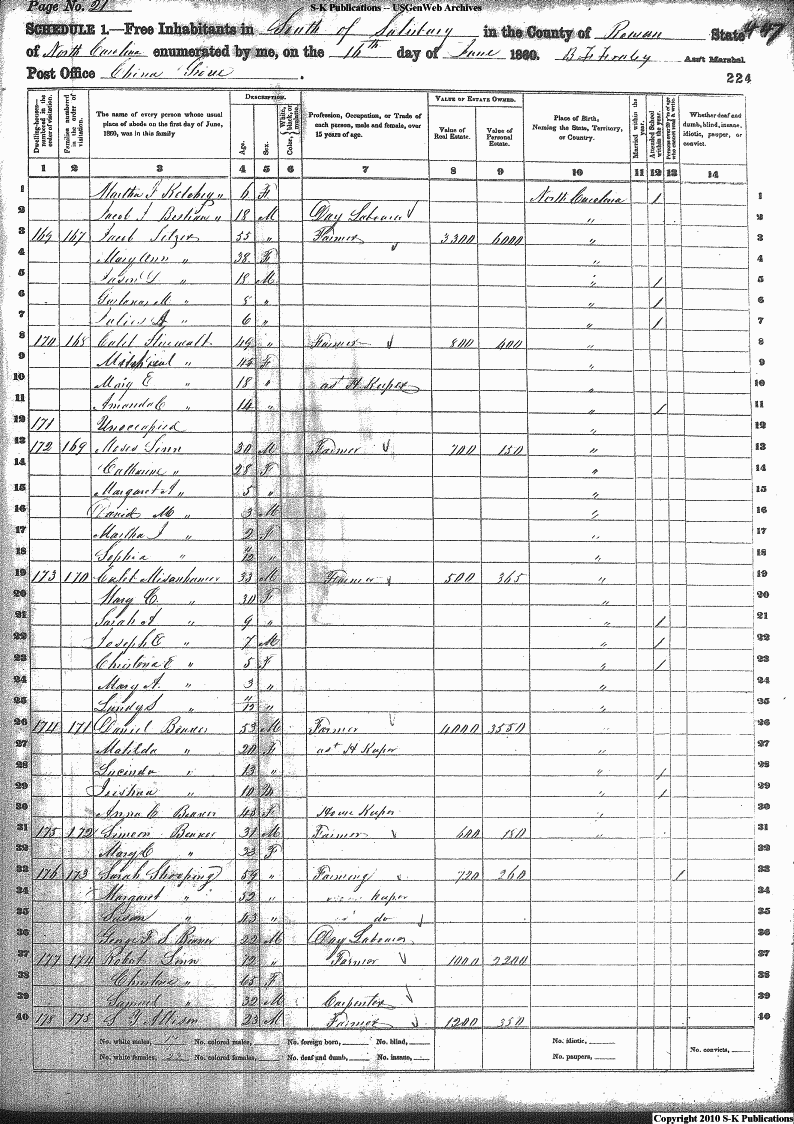 Page No. 21
S-K Publications -- USGenWeb Archives
SCHEDULE 1.—Free Inhabitants in South of Salisbury in the County of Rowan State 447
of North Carolina enumerated by me, on the 16th day of June 1860. Ass't Marshal
Post Office China Grove 224
Dwelling-houses— numbered in the order of visitation.
Families numbered in the order of visitation.
The name of every person whose usual place of abode on the first day of June, 1860, was in this family
DESCRIPTION.
Age.
Sex.
Color, White, black, or mulatto.
Profession, Occupation, or Trade of each person, male and female, over 15 years of age.
VALUE OF ESTATE OWNED.
Value of Real Estate.
Value of Personal Estate.
Place of Birth, Naming the State, Territory, or Country.
Married within the year.
Attended School within the year.
Persons over 20 y'rs of age who cannot read & write.
Whether deaf and dumb, blind, insane, idiotic, pauper, or convict.
1 2 3 4 5 6 7 8 9 10 11 12 13 14
1 Martha 6 F North Carolina / 1
2 Jacob 18 M Day Labourer " 2
3 169 167 Jacob 55 " Farmer 3300 6000 " 3
4 Mary Ann " 38 F " 4
5 Jason " 18 M " / 5
6 M " 8 " " / 6
7 Julius A " 6 " " / 7
8 170 168 49 " Farmer 800 400 " 8
9 " 45 F " 9
10 Mary E " 18 " as't H Keeper " 10
11 Amanda C " 14 " " / 11
12 171 Unoccupied " 12
13 172 169 Moses Linn 30 M Farmer 700 150 " 13
14 Catharine " 28 F " 14
15 Margaret A " 5 " " 15
16 David M " 3 M " 16
17 Martha J " 2 F " 17
18 Sophia " 11/12 " " 18
19 173 170 Misenhamer 33 M Farmer 500 365 " 19
20 Mary C " 30 F 20
21 Sarah A " 9 " " / 21
22 Joseph E " 7 M " / 22
23 Christena E " 5 F " / 23
24 Mary A. " 3 " " 24
25 " 11/12 " " 25
26 174 171 Daniel Beaver 53 M Farmer 4000 3550 " 26
27 Matilda " 20 F as't H Keeper " 27
28 Lucinda " 13 " " / 28
29 " 10 M " / 29
30 Anna C Beaver 48 F House Keeper " 30
31 175 172 Simeon Beaver 31 M Farmer 600 150 " 31
32 Mary C " 33 F 32
33 176 173 Sarah 59 " Farming 720 260 / 33
34 Margaret " 52 " Keeper 34
35 Susan " 43 " do 35
36 George F S 22 M Day Labourer 36
37 177 174 Robert Linn 72 " Farmer 1000 2200 37
38 Christina " 65 F 38
39 Samuel " 32 M Carpenter 39
40 178 175 23 M Farmer 1200 350 40
No. white males, 17 No. colored males, No. foreign born, No. blind, No. idiotic, No. convicts,
No. white females, 22 No. colored females, No. deaf and dumb, No. insane, No. paupers,
Copyright 2010 S-K Publications